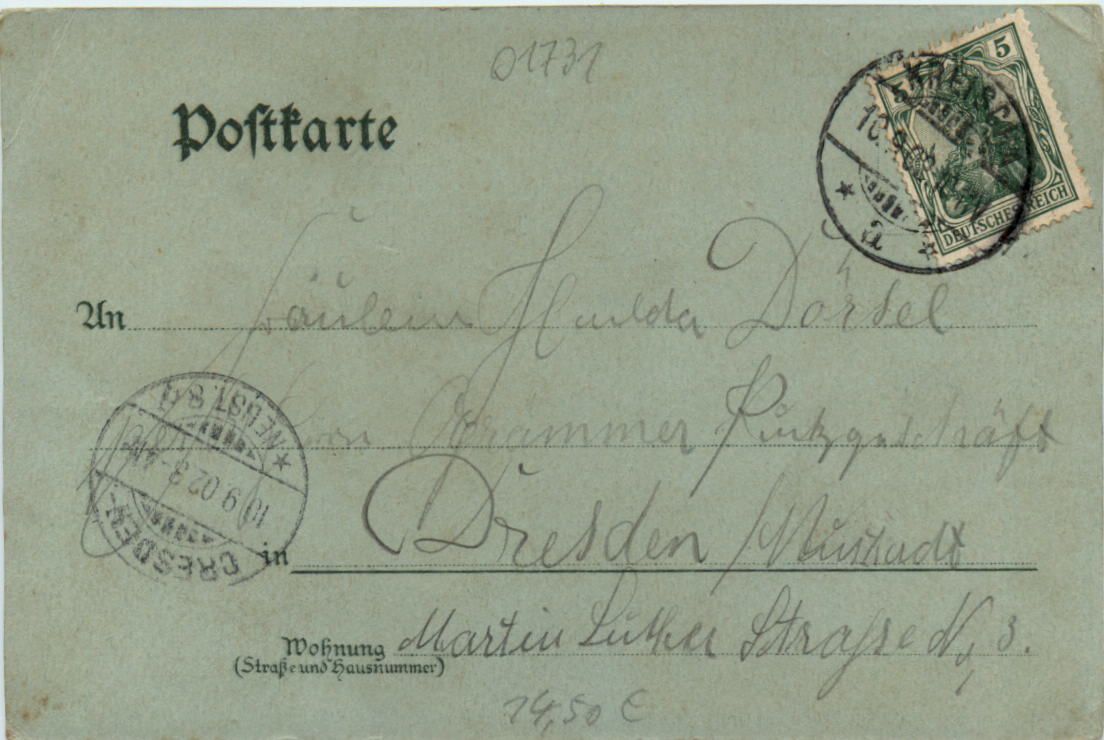 01731
Postkarte
5 5
KREISCHA
10.9.02
DEUTSCHES REICH
An Fräulein Hulda Dörsel
Herrn Brammer Putzgeschäft
DRESDEN-NEUST. 8
10 9 02 3-4N
in Dresden / Neustadt
Wohnung Martin Luther Straße N, 3.
(Straße und Hausnummer)
14,50 €